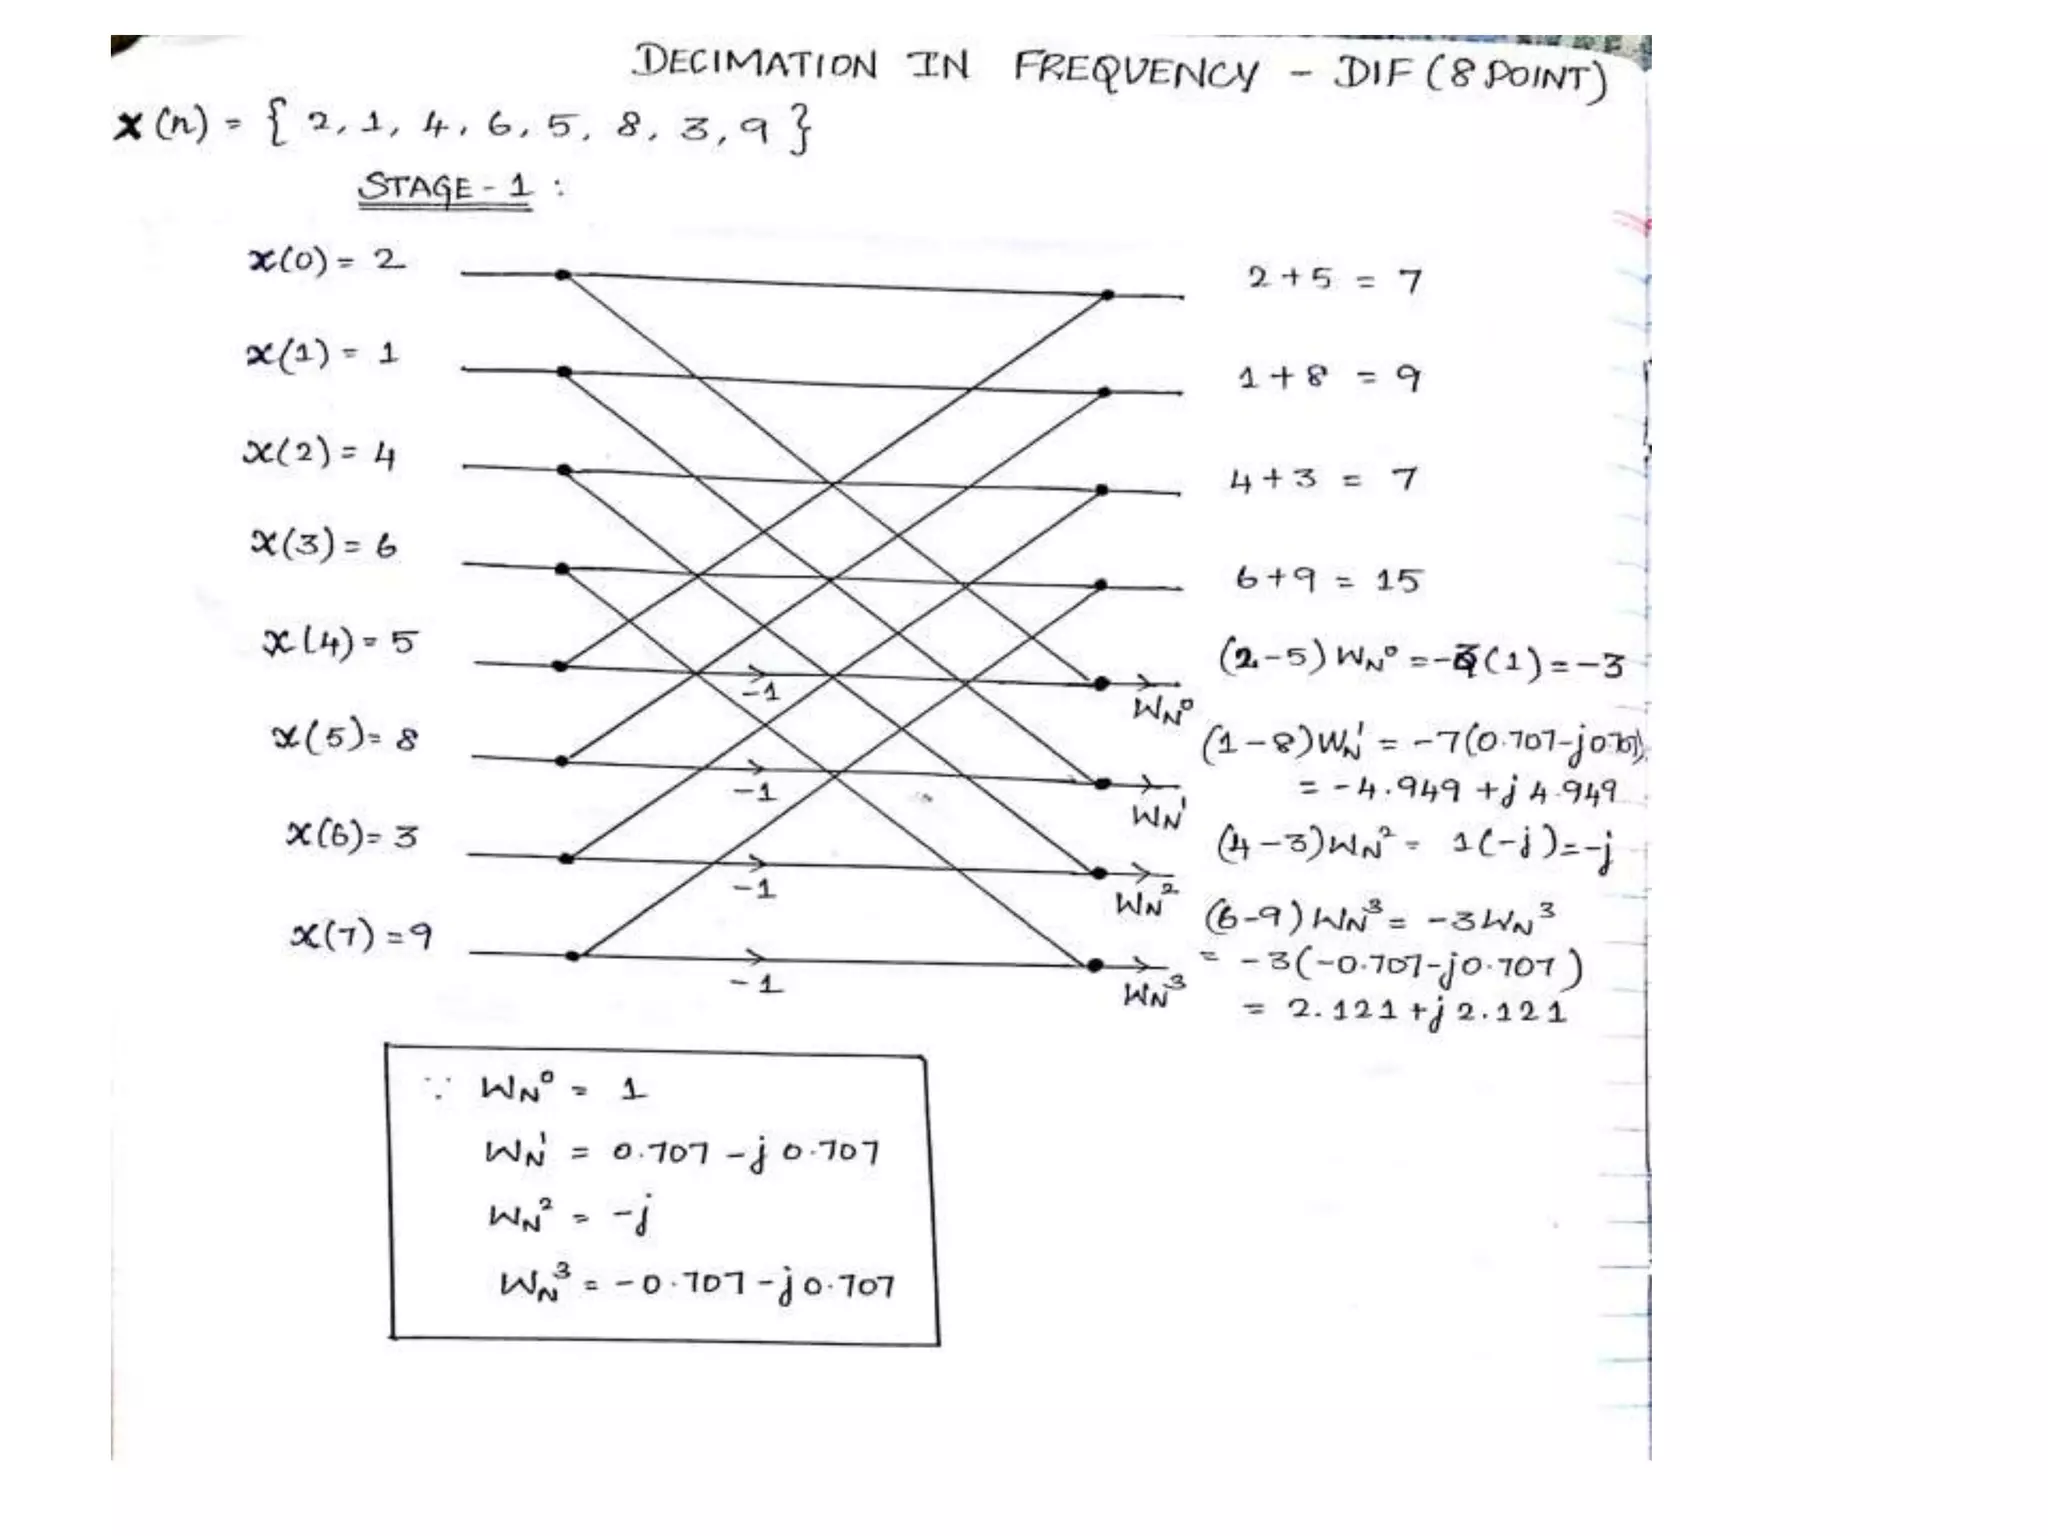 DECIMATION IN FREQUENCY - DIF (8 POINT)
x(n) = { 2, 1, 4, 6, 5, 8, 3, 9 }
STAGE-1 :
x(0) = 2
2+5 = 7
x(1) = 1
1+8 = 9
x(2) = 4
4+3 = 7
x(3) = 6
6+9 = 15
x(4) = 5
-1
W_N^0
(2-5) W_N^0 = -3(1) = -3
x(5) = 8
-1
W_N^1
(1-8) W_N^1 = -7(0.707-j0.707)
= -4.949 + j4.949
x(6) = 3
-1
W_N^2
(4-3) W_N^2 = 1(-j) = -j
x(7) = 9
-1
W_N^3
(6-9) W_N^3 = -3 W_N^3
= -3(-0.707-j0.707)
= 2.121 + j2.121
∵ W_N^0 = 1
W_N^1 = 0.707 - j0.707
W_N^2 = -j
W_N^3 = -0.707 - j0.707